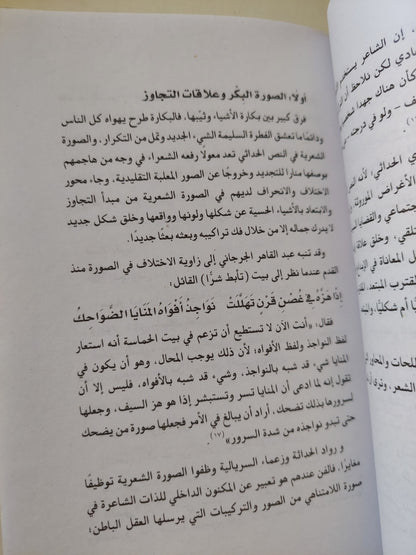 أولاً: الصورة البِكْر وعلاقات التجاوز
فرق كبير بين بكارة الأشياء وثيّبها. فالبكارة طرح يهواه كل الناس
ودائمًا ما تعشق الفطرة السليمة الشيء الجديد وتمل من التكرار. والصورة
الشعرية في النص الحداثي تعد معولا رفعه الشعراء في وجه من هاجمهم
بوصفها منارا للتجديد وخروجًا عن الصور المعلبة التقليدية. وجاء محور
الاختلاف والانحراف لديهم في الصورة الشعرية من مبدأ التجاوز
والابتعاد بالأشياء الحسية عن شكلها ولونها وواقعها وخلق شكل جديد
لا يدرك جماله إلا من خلال فك تراكيبه وبعثه بعثًا جديدًا.
وقد تنبه عبد القاهر الجرجاني إلى زاوية الاختلاف في الصورة منذ
القدم عندما نظر إلى بيت (تأبط شرًا) القائل:
إذا هَزَّهُ فِي عُظمِ قَرْنٍ تَهَلَّلَتْ نَوَاجِذُ أَفْوَاهِ المَنَايَا الضَّوَاحِكُ
فقال: «أنت الآن لا تستطيع أن تزعم في بيت الحماسة أنه استعار
لفظ النواجذ ولفظ الأفواه؛ لأن ذلك يوجب المحال، وهو أن يكون في
المنايا شيء قد شبه بالنواجذ، وشيء قد شبه بالأفواه. فليس إلا أن
تقول إنه لما ادعى أن المنايا تسر وتستبشر إذا هو هز السيف، وجعلها
لسرورها بذلك تضحك، أراد أن يبالغ في الأمر فجعلها صورة من يضحك
حتى تبدو نواجذه من شدة السرور»(١٧).
و رواد الحداثة وزعماء السريالية وظفوا الصورة الشعرية توظيفًا
مغايرًا. فالفن عندهم هو تعبير عن المكنون الداخلي للذات الشاعرة في
صورة اللامتناهي من الصور والتركيبات التي يرسلها العقل الباطن؛